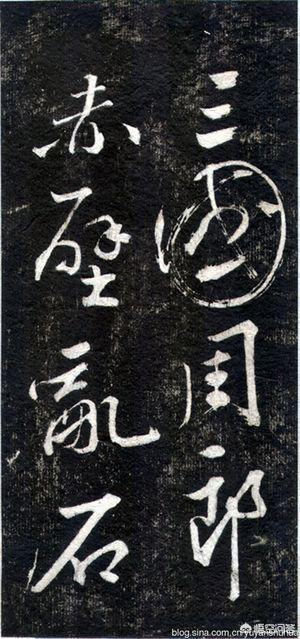 三國周郎
赤壁亂石
blog.sina.com.cn/yuyanshuhua
悟空问答